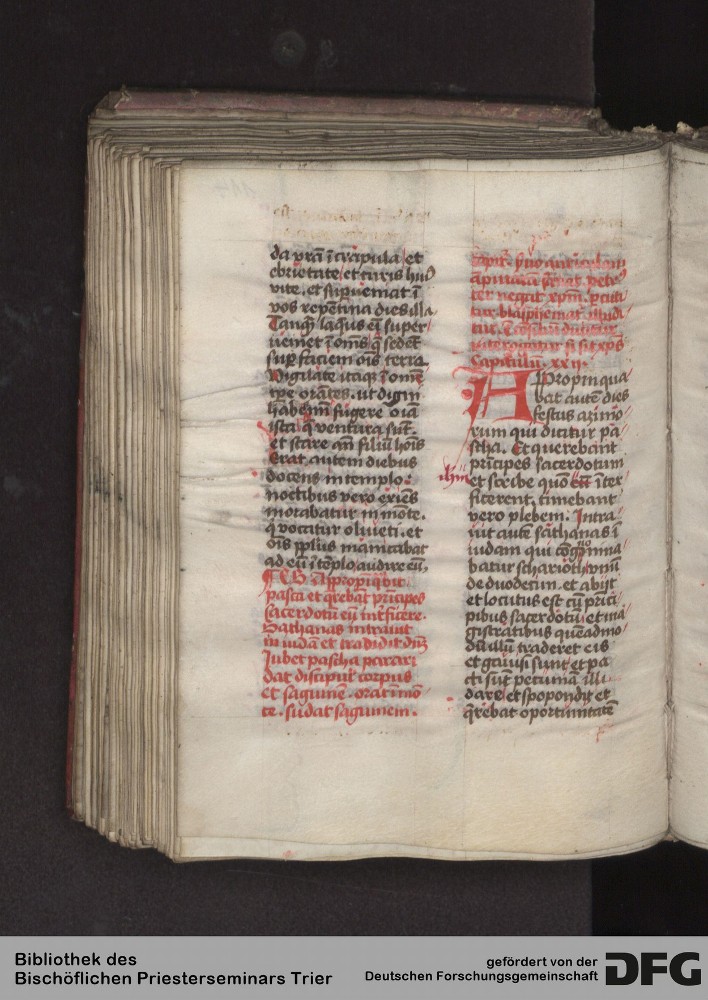 da vrā ī crapula et
ebrietate et curis huiꝰ
vite. et supueniat ī
vos repentina dies illa
Tanq̄ laqus eī super
ueniet ī oms q̄ sedēt
sup faciem ois terre
Vigilate itaq̄ ī omē
tpe orātes. ut digni
habeamī fugere oīa
ista q̄ ventura sūt.
et stare añ filiū hoīs
Erat autem diebus
docens in templo.
noctibus vero exiēs
morabatur in mōte.
q̄ vocatur oliueti. et
ois pplus manicabat
ad eū ī tēplo audire eū.
Appropīq̄bat
pasca et q̄rebāt prīcipes
sacerdotū eū intficere.
Sathanas intrauit
in iudā et tradidit
Iubet pascha parari
dat discipul corpus
et sagiunē. orat ī mō
te. sudat sagiunem.
ter negat xpm.
Capitulum xxii.
APropinqua
bat autē dies
festus azimo
rum qui dicitur pa
scha. Et querebant
prīcipes sacerdotum
et scribe quō ihm īter
ficerent. timebant
vero plebem. Intra
uit autē sathanas ī
iudam qui cognomina
batur scharioth vnū
de duodecim. et abijt
et locutus est cū prīci
pibus sacerdotū et ma
gistratibus quēadmo
dū illū traderet eis
et gauisi sunt et pa
cti sūt pecuniam illi
dare et spopondit et
q̄rebat oportunitatē
Bibliothek des
Bischöflichen Priesterseminars Trier
gefördert von der
Deutschen Forschungsgemeinschaft
DFG